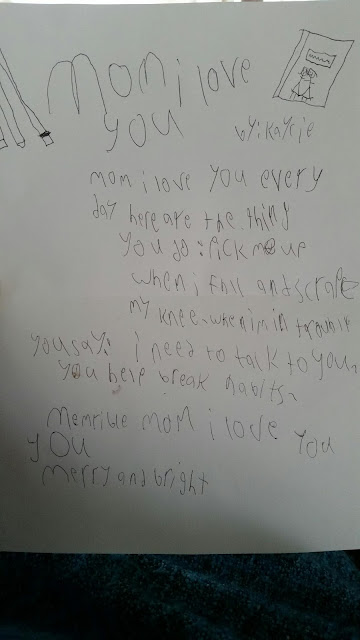 Mom i love
you
by: Kayrie
mom i love you every
day here are the thing
you do: Pick me up
when i fall and scrape
my knee. when im in trouble
you say: i need to talk to you.
you help break habits.
Memrible mom i love you
you
merry and bright